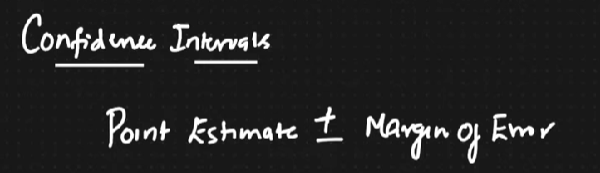 Confidence Intervals
Point Estimate ± Margin of Error